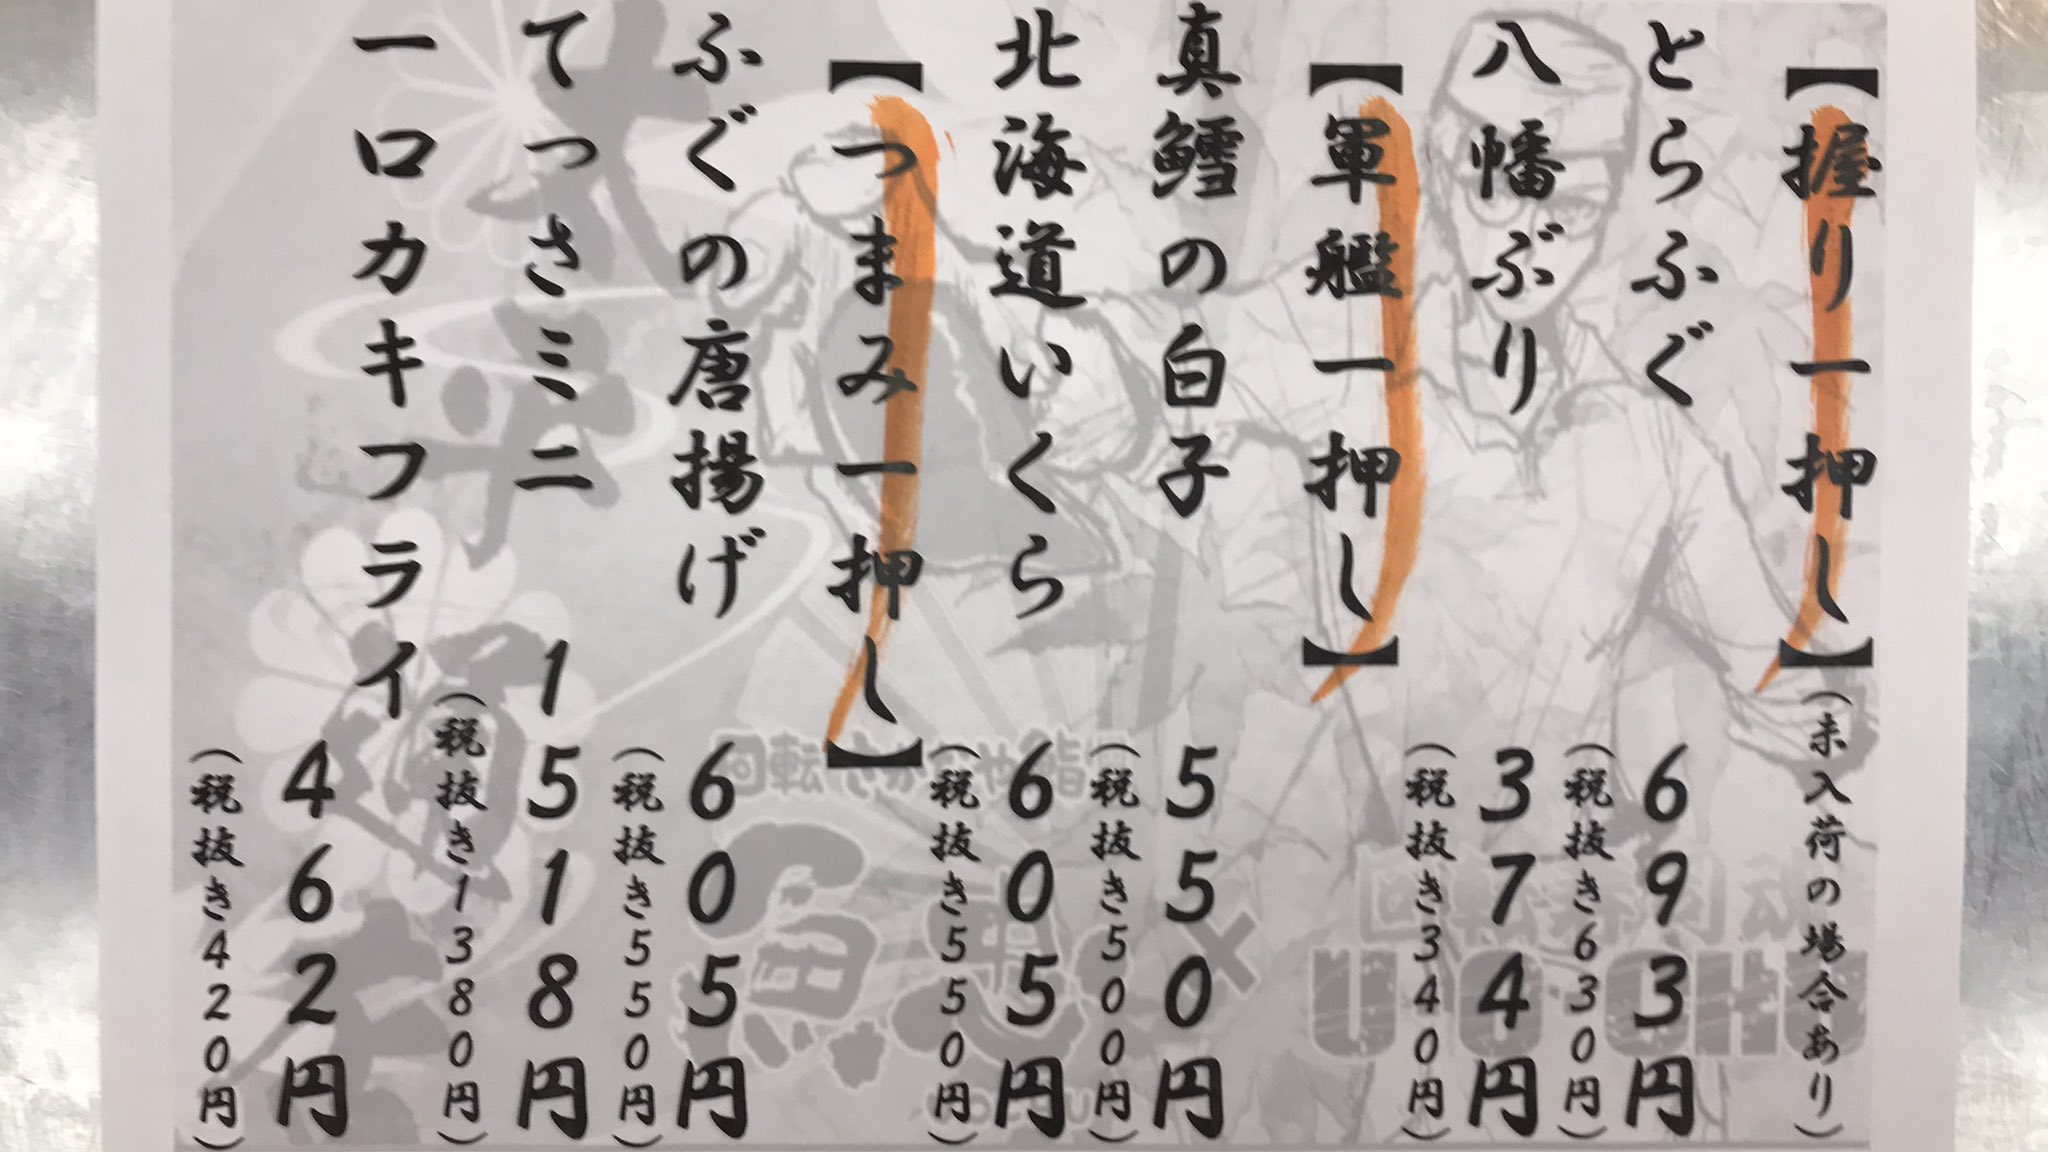 【握り一押し】(未入荷の場合あり)
とらふぐ 693円
(税抜き630円)
八幡ぶり 374円
(税抜き340円)
【軍艦一押し】
真鱈の白子 550円
(税抜き500円)
北海道いくら 605円
(税抜き550円)
【つまみ一押し】
ふぐの唐揚げ 605円
(税抜き550円)
てっさミニ 1518円
(税抜き1380円)
一口カキフライ 462円
(税抜き420円)